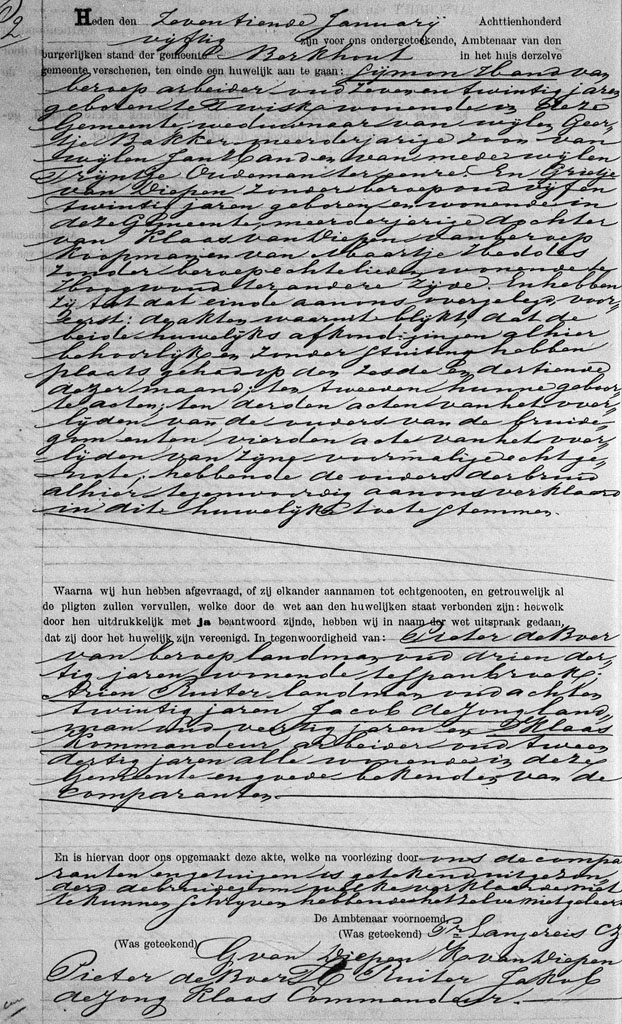 2
Heden den Zeventiende Januarij Achttienhonderd
vijftig zijn voor ons ondergeteekende, Ambtenaar van den
burgerlijken stand der gemeente Berkhout in het huis derzelve
gemeente, verschenen, ten einde een huwelijk aan te gaan: Sijmon Hand van
beroep arbeider oud zeven en twintig jaren
geboren te Twisk wonende in deze
Gemeente weduwnaar van wijlen Geer=
tje Bakker meerderjarige zoon van
wijlen Jan Hand en van mede wijlen
Trijntje Oudemaister eenre. En Grietje
van Diepen zonder beroep oud vijf en
twintig jaren geboren en wonende in
deze Gemeente, meerderjarige dochter
van Klaas van Diepen van beroep
koopman en van Maartje
zonder beroep echtelieden wonende te
Hoogwoud ter andere zijde. En hebben
zij tot dat einde aan ons overgelegd, voor=
eerst: de akten waaruit blijkt, dat de
beide huwelijks afkondigingen alhier
behoorlijk en zonder stuiting hebben
plaats gehad op den zesde en dertiende
dezer maand; ten tweeden hunne geboor=
te acten; ten derden acten van het over=
lijden van de ouders van de bruide=
gom en ten vierden acte van het over=
lijden van zijne voormalige echtge=
note; hebbende de ouders der bruid
alhier tegenwoordig aan ons verklaard
in dit huwelijk toe te stemmen.
Waarna wij hun hebben afgevraagd, of zij elkander aannamen tot echtgenooten, en getrouwelijk al
de pligten zullen vervullen, welke door de wet aan den huwelijken staat verbonden zijn: hetwelk
door hen uitdrukkelijk met ja beantwoord zijnde, hebben wij in naam der wet uitspraak gedaan,
dat zij door het huwelijk zijn vereenigd. In tegenwoordigheid van: Pieter de Boer
van beroep landman oud drie en der=
tig jaren wonende te Spanbroek;
Arien Ruiter landman oud acht en
twintig jaren Jacob de Jong land,
man oud veertig jaren en Klaas
Kommandeur arbeider oud twee en
dertig jaren alle wonende in deze
Gemeente en goede bekenden van de
Comparanten.
En is hiervan door ons opgemaakt deze akte, welke na voorlezing door ons de compa
ranten en getuigen is getekend uitgezon,
derd de bruidegom welke verklaarde niet
te kunnen schrijven hebbende hetzelve niet geleerd
De Ambtenaar voornoemd,
(Was geteekend) Pr. Langereis Cz
(Was geteekend) G van Diepen K van Diepen
Pieter de Boer A Ruiter Jakob
de Jong Klaas Commandeur.